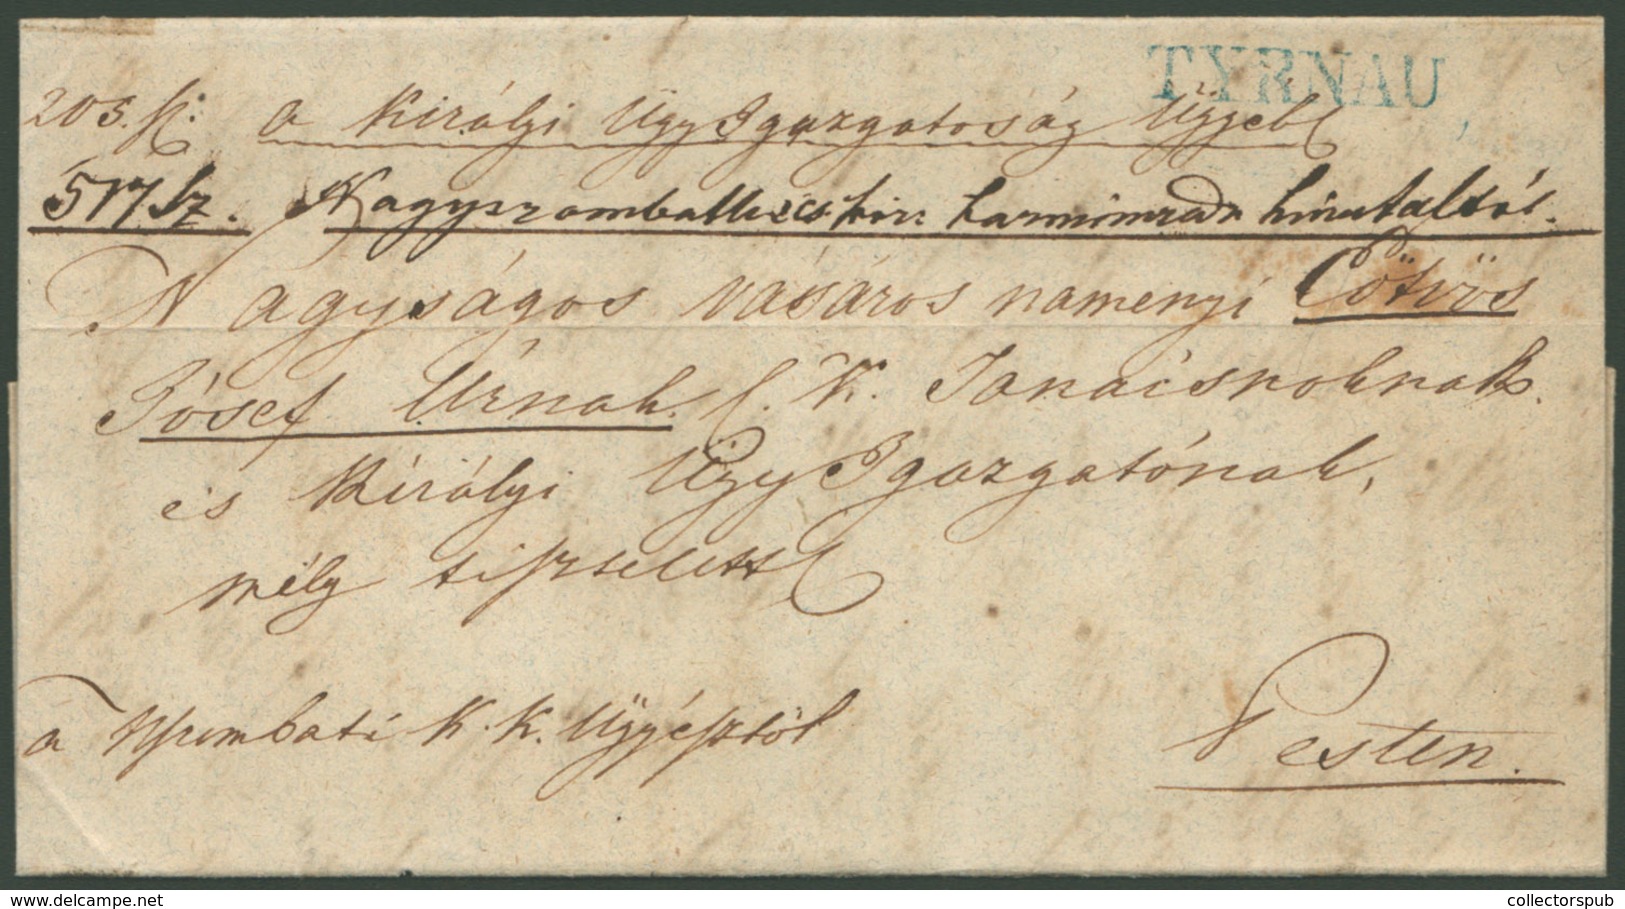 TYRNAU
203. sz: a Királyi Ügy Igazgatóság Ügyeb
517 Sz. Nagyszombathi cs. kir: harminczad hivataltól.
Nagyságos vásáros naményi Eötvös
Jósef Úrnak. C. K. Tanácsnoknak
és Királyi Ügy Igazgatónak,
mély tisztelettel
a NSzombati K. K. Ügyésztöl
Pesten.
delcampe.net
collectorspub